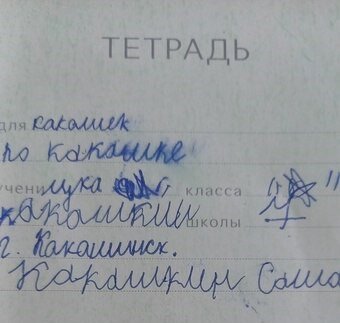 ТЕТРАДЬ
для какашек
по какашке
учени цука класса "
какашкин школы
г. Какашинск.
Какашкин Саша